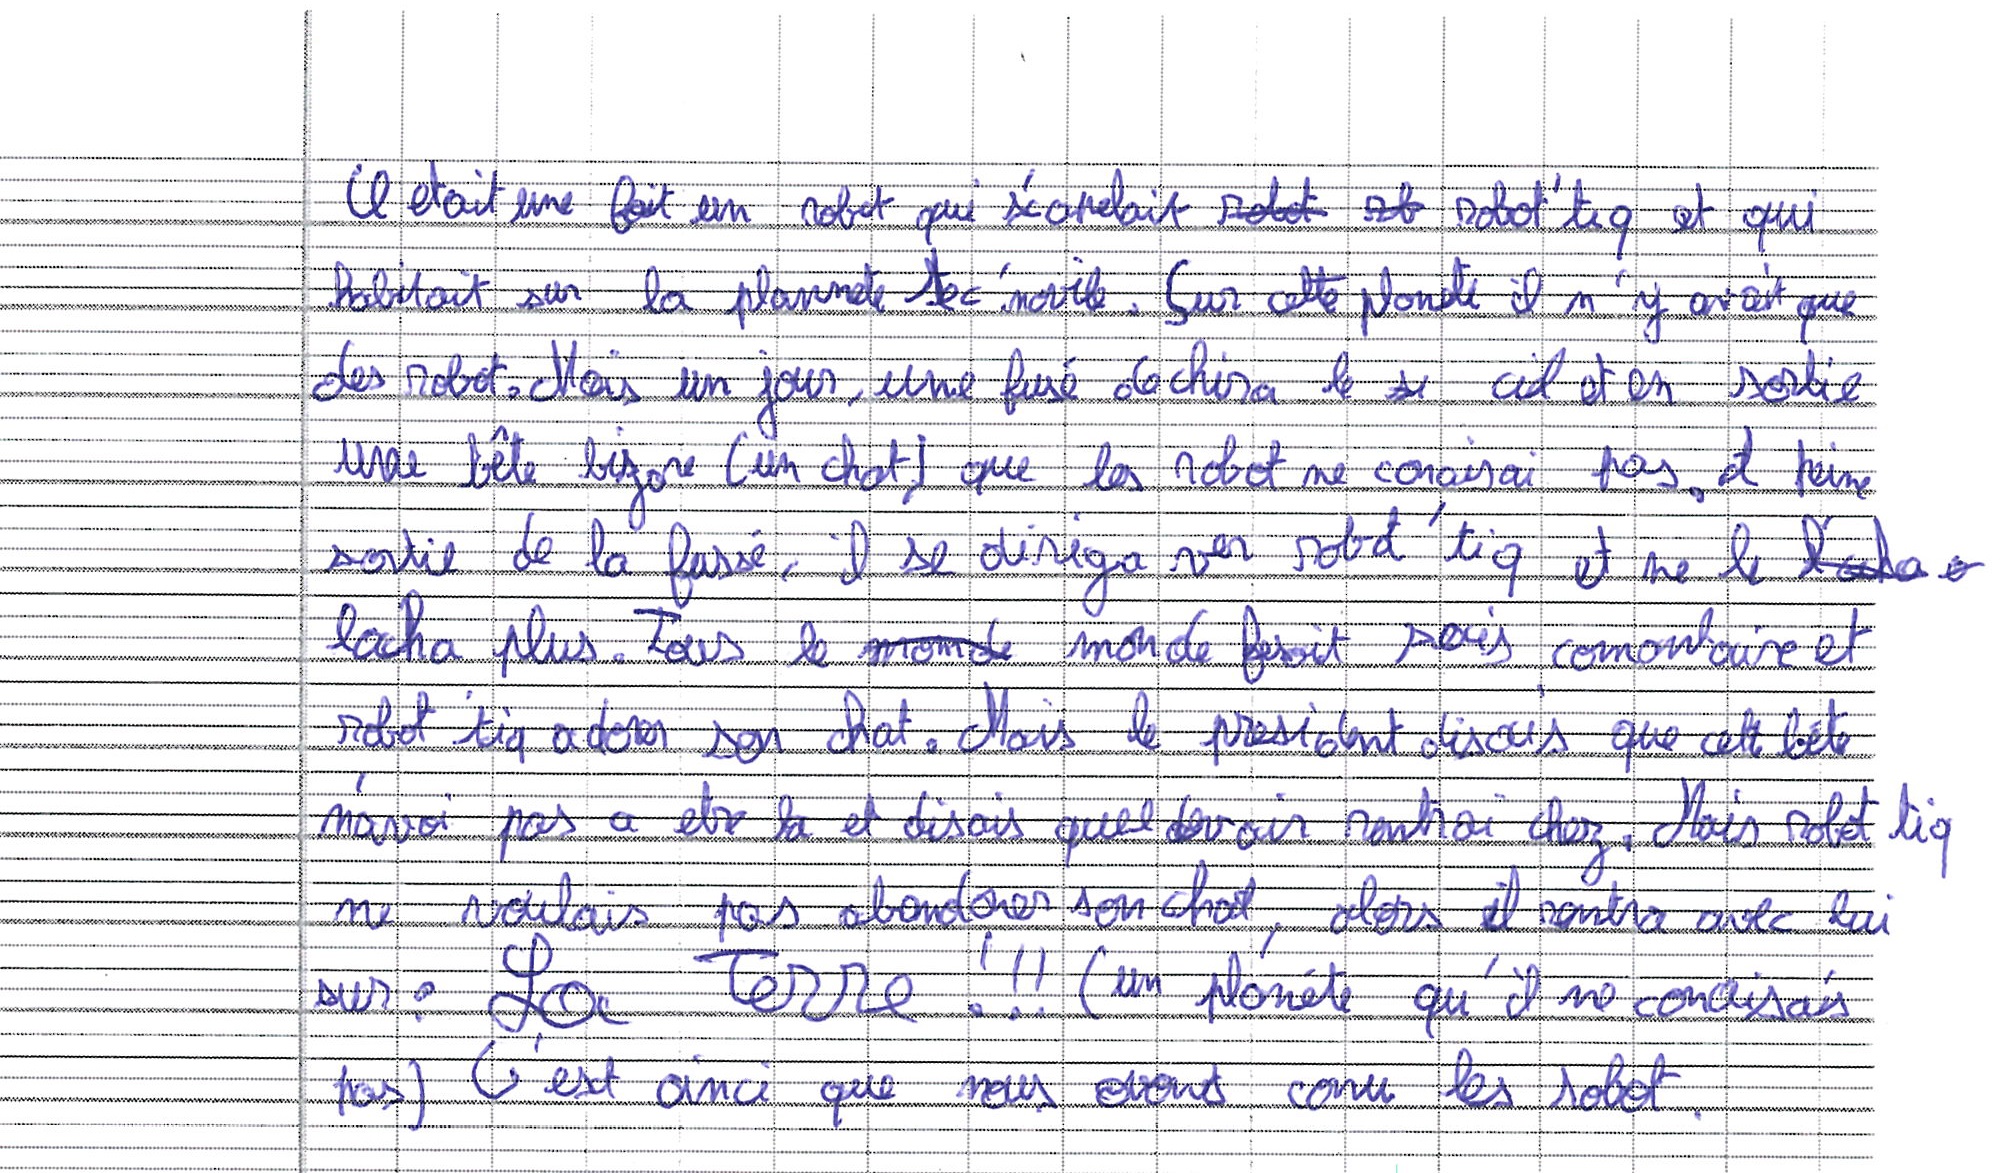 il etait une foit un robot qui s'apelait robot'tiq et qui
habitait sur la plannete tec'norile. Sur cette planete il n'y avait que
des robot. Mais un jour, une fusé dechira le ciel et en sortie
une bête bizare (un chat) que les robot ne conaisai pas, a peine
sortie de la fussé, il se diriga ver robot'tiq et ne le
lacha plus. Tous le monde fesait ses comontaire et
robot'tiq adorer son chat. Mais le president disais que cett bête
n'avoi pas a etre la et disais quel devair rentrai chez. Mais robot tiq
ne voulais pas abandoner son chat, alors il rentra avec lui
sur : La Terre !!! (un planéte qu'il ne conaisais
pas) C'est ainci que nous avons conu les robot.